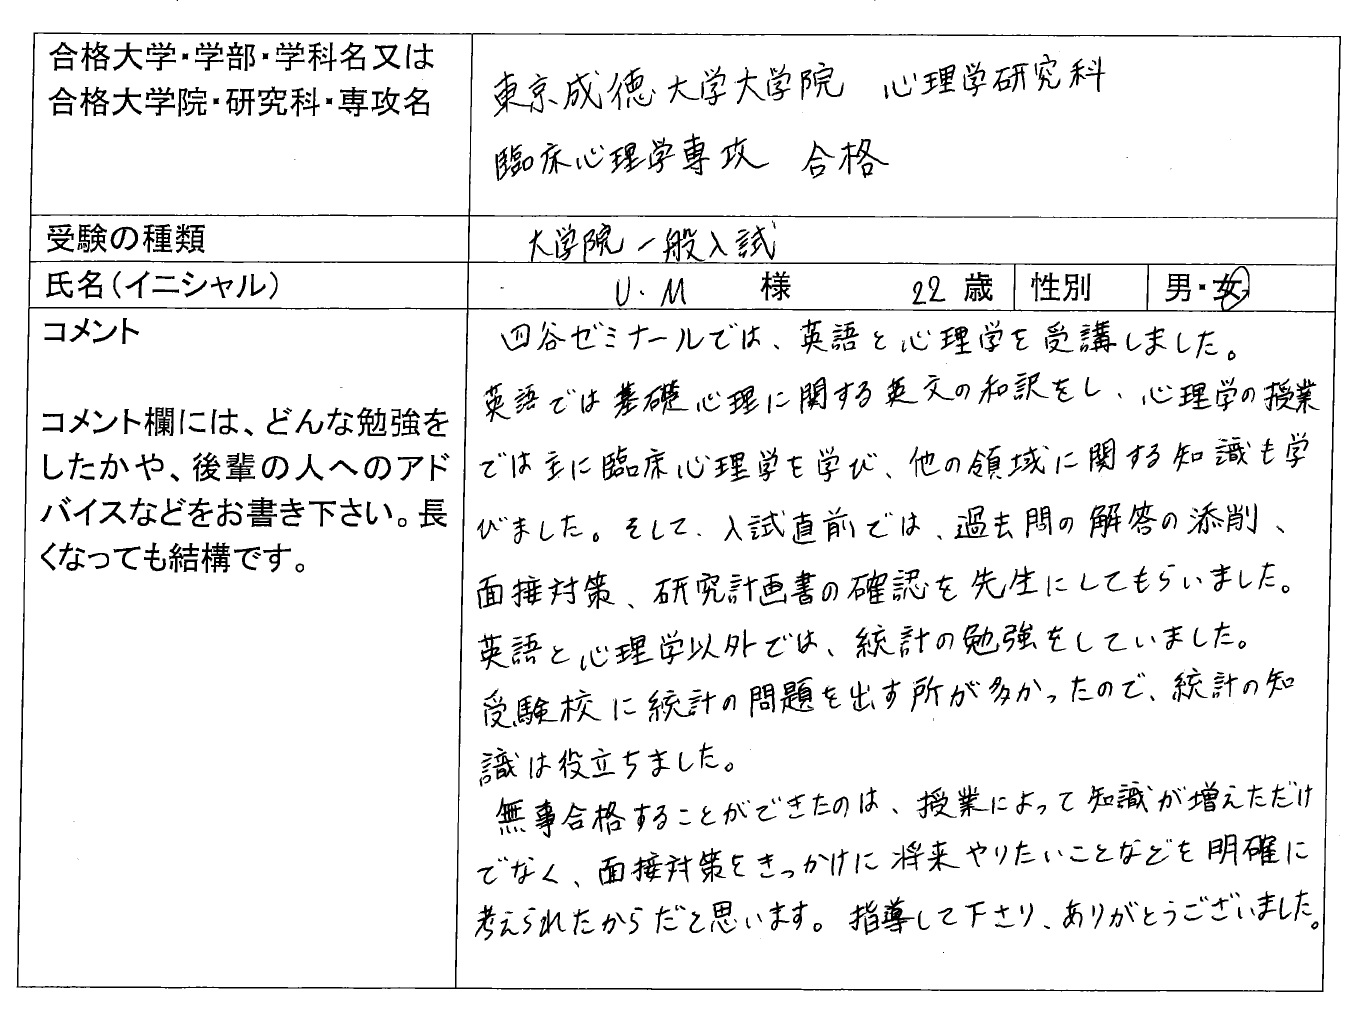 合格大学・学部・学科名又は
合格大学院・研究科・専攻名
東京成徳大学大学院 心理学研究科
臨床心理学専攻 合格
受験の種類
大学院一般入試
氏名(イニシャル)
U.M 様 22 歳 性別 男・女
コメント
コメント欄には、どんな勉強を
したかや、後輩の人へのアド
バイスなどをお書き下さい。長
くなっても結構です。
四谷ゼミナールでは、英語と心理学を受講しました。
英語では基礎心理に関する英文の和訳をし、心理学の授業
では主に臨床心理学を学び、他の領域に関する知識も学
びました。そして、入試直前では、過去問の解答の添削、
面接対策、研究計画書の確認を先生にしてもらいました。
英語と心理学以外では、統計の勉強をしていました。
受験校に統計の問題を出す所が多かったので、統計の知
識は役立ちました。
無事合格することができたのは、授業によって知識が増えただけ
でなく、面接対策をきっかけに将来やりたいことなどを明確に
考えられたからだと思います。指導して下さり、ありがとうございました。